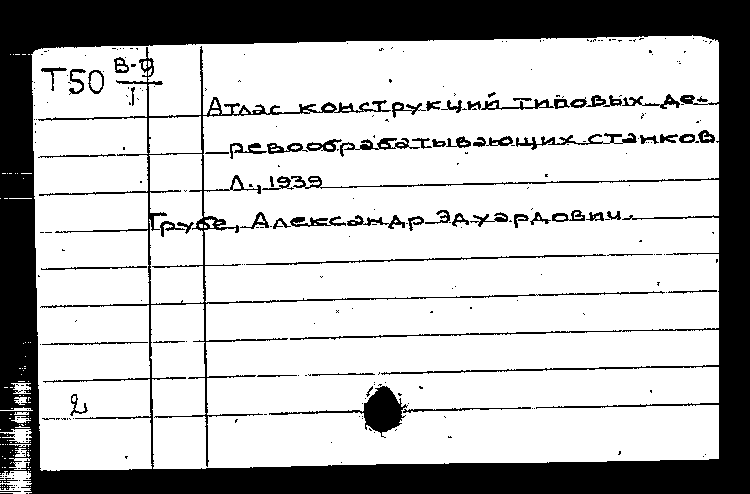 Т50 В-9
I
Атлас конструкций типовых де-
ревообрабатывающих станков
Л., 1939
Грубе, Александр Эдуардович.
2